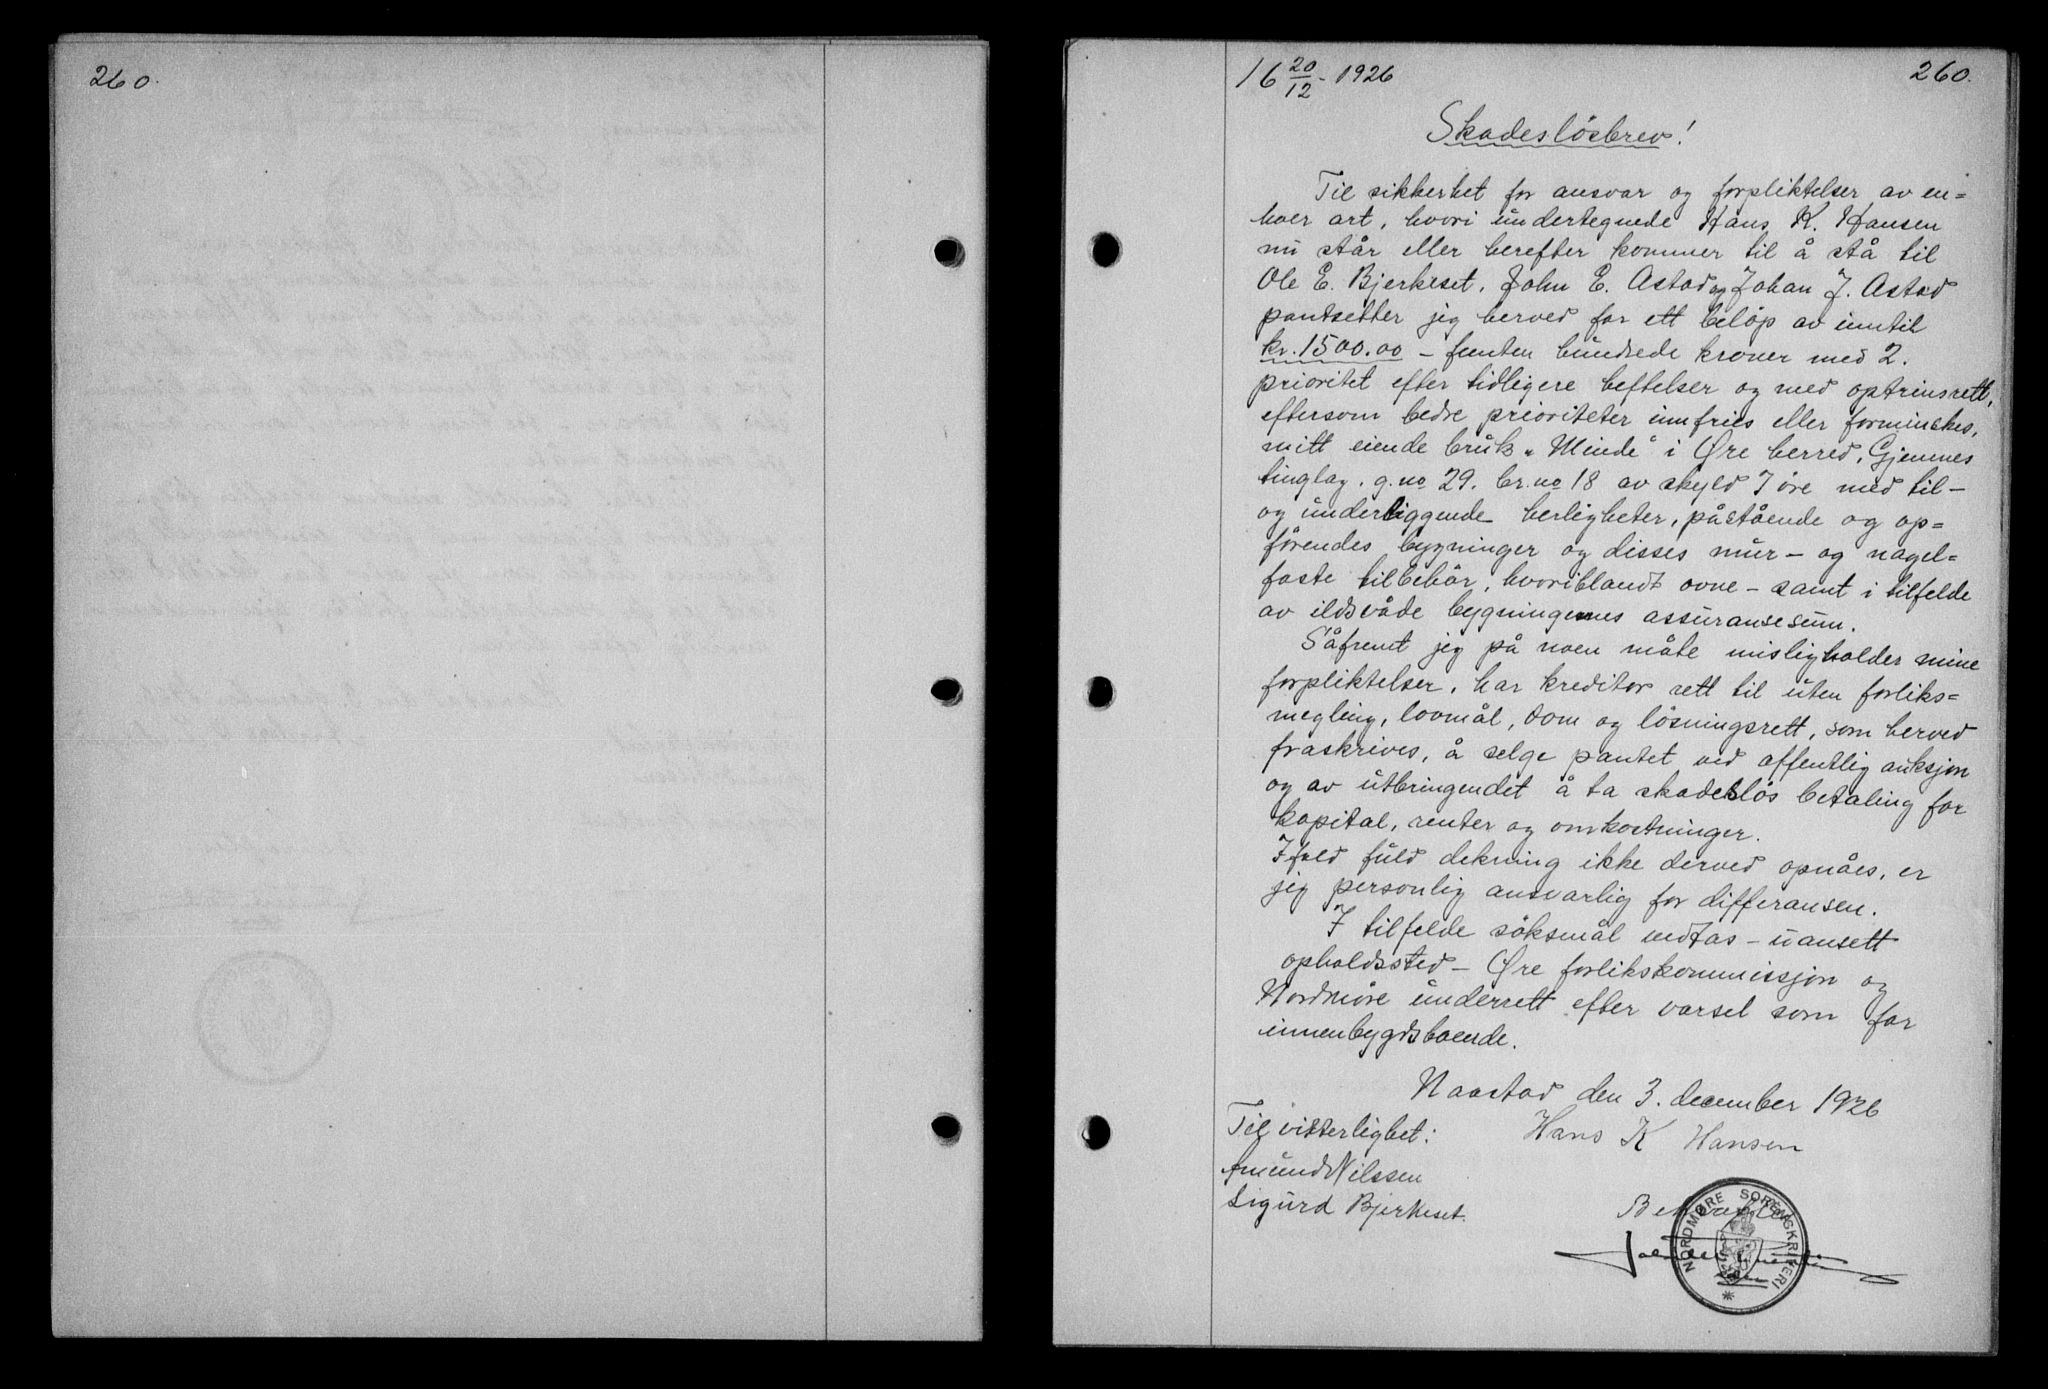 260.
16 20/12 - 1926
260.
Skadesløsbrev!
Til sikkerhet for ansvar og forpliktelser av en=
hver art, hvori undertegnede Hans K. Hansen
nu står eller herefter kommer til å stå til
Ole E. Bjerkeset, John E. Astad og Johan J. Astad
pantsetter jeg herved for ett beløp av inntil
kr. 1500.00 - femten hundrede kroner med 2.
prioritet efter tidligere heftelser og med optrinsrett,
eftersom bedre prioriteter innfries eller forminskes,
mitt eiende bruk "Minde" i Øre herred, Gjemnes
tinglag, g.no 29. br.no 18 av skyld 7 øre med til-
og underliggende herligheter, påstående og op=
førendes bygninger og disses mur- og nagel=
faste tilbehør, hvoriblandt ovne - samt i tilfelde
av ildsvåde bygningenes assuransesum.
Såfremt jeg på noen måte misligholder mine
forpliktelser, har kreditor rett til uten forliks=
megling, lovmål, dom og løsningsrett, som herved
fraskrives, å selge pantet ved offentlig auksjon
og av utbringendet å ta skadesløs betaling for
kapital, renter og omkostninger.
Ifald fuld dekning ikke derved opnåes, er
jeg personlig ansvarlig for differansen.
I tilfelde søksmål vedtas - uansett
opholdssted - Øre forlikskommissjon og
Nordmøre underrett efter varsel som for
innenbygdsboende.
Naastad den 3. december 1926
Til vitterlighet:
Hans K Hansen
Amund Nilssen
Sigurd Bjerkeset.
Bekreftes
NORDMØRE SORENSKRIVERI